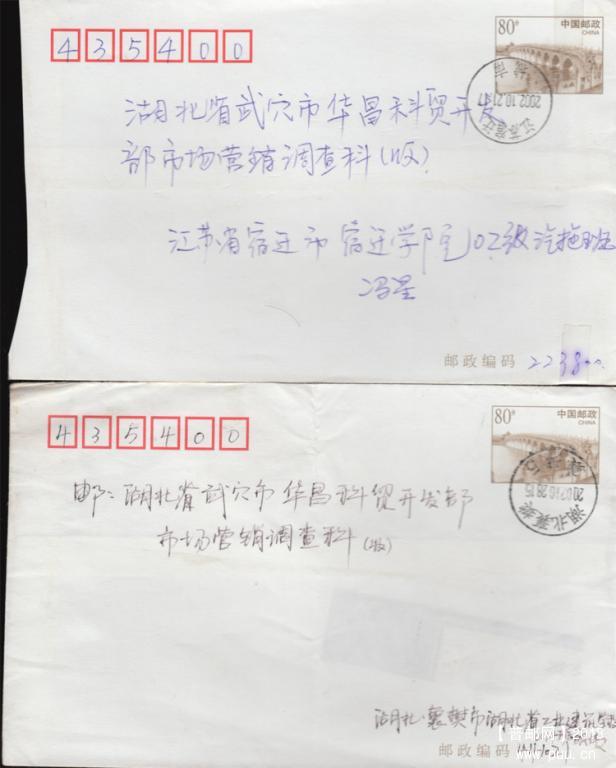 435400
80分 中国邮政
CHINA
2002.10.21.17
湖北省武穴市华昌科贸开发
部市场营销调查科(收)
江苏省宿迁市宿迁学院02级汽拖班
冯星
邮政编码 2238
435400
80分 中国邮政
CHINA
湖北襄樊
邮:湖北省武穴市华昌科贸开发部
市场营销调查科(收)
湖北·襄樊市湖北省工业建筑学校
邮政编码
【普邮网】2013
www.puu.cn